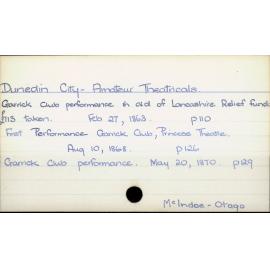 Dunedin City - Amateur Theatricals.
Garrick Club performance in aid of Lancashire Relief fund.
£115 taken. Feb 27, 1863. p110
First Performance - Garrick Club, Princess Theatre.
Aug 10, 1868. p126
Garrick Club performance. May 20, 1870. p129
McIndoe - Otago